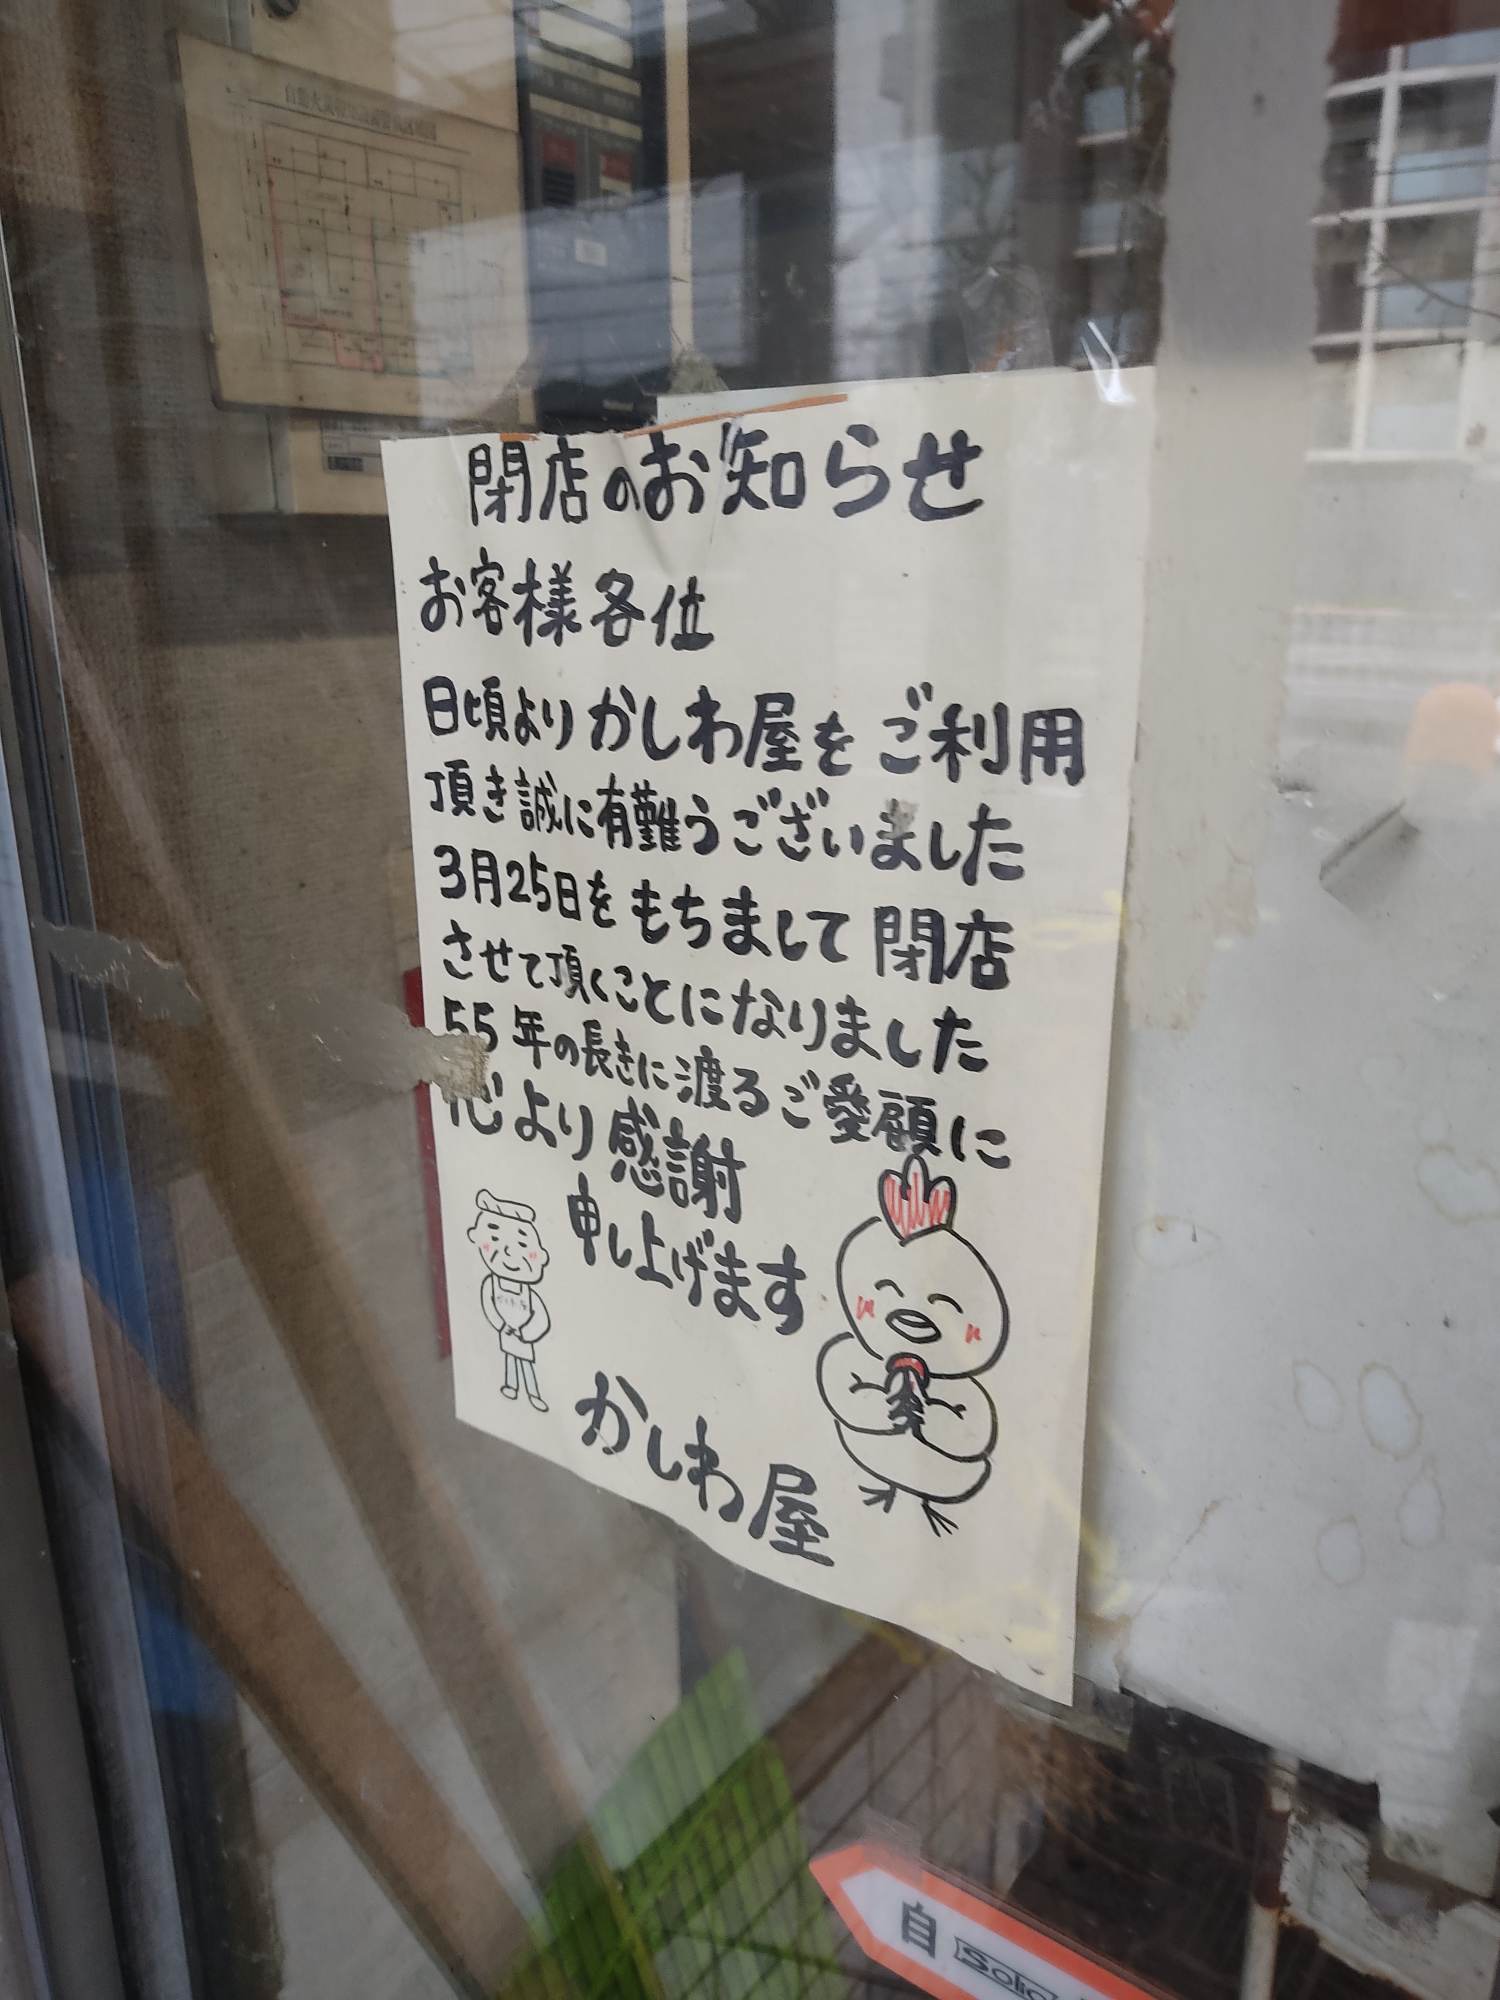 閉店のお知らせ
お客様各位
日頃よりかしわ屋をご利用
頂き誠に有難うございました
3月25日をもちまして閉店
させて頂くことになりました
55年の長きに渡るご愛顧に
心より感謝
申し上げます
かしわ屋
自 Solic